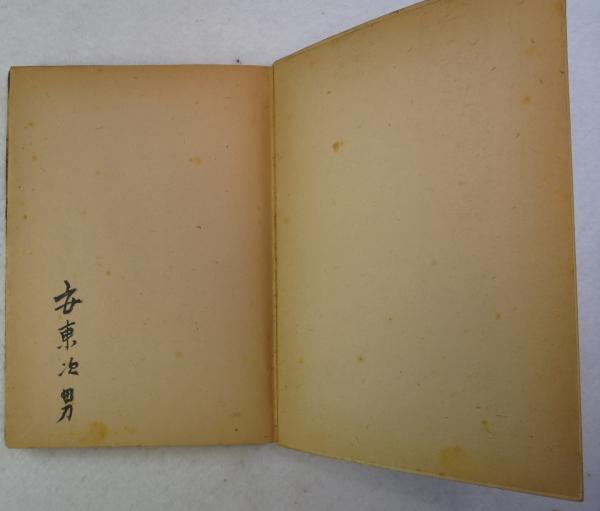 安東次男